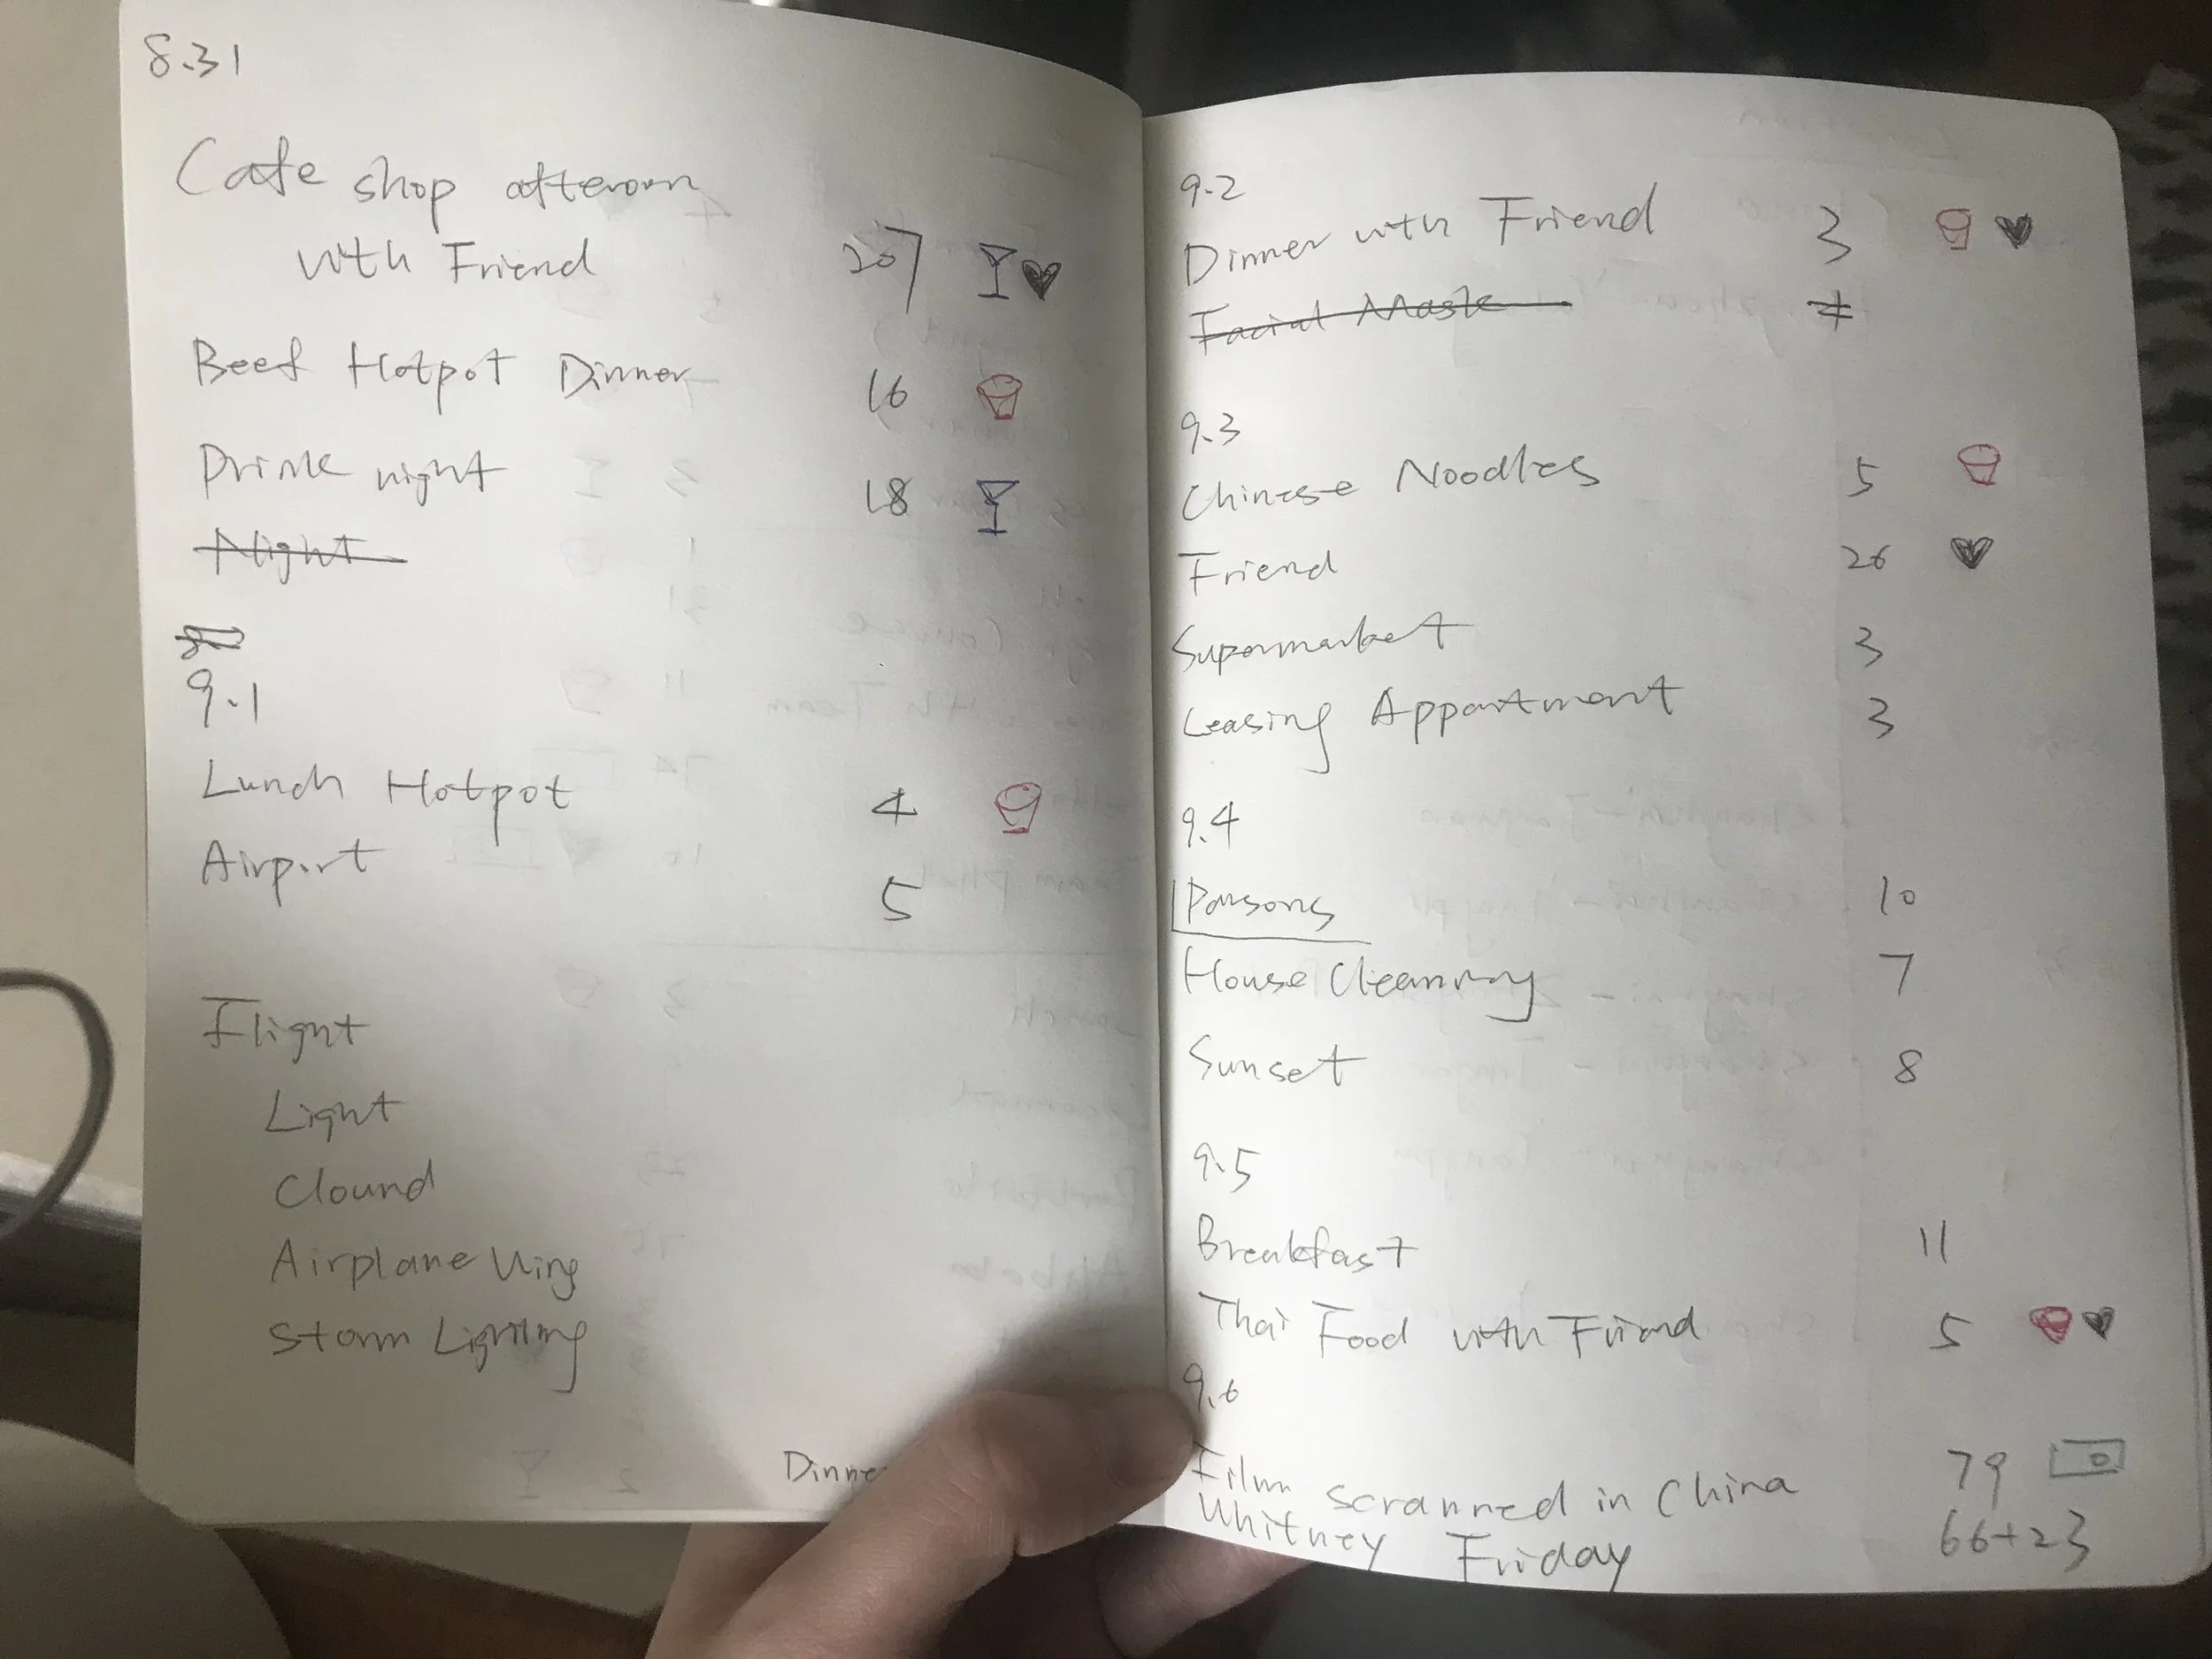 8.31
Cafe shop afteroon
with Friend 207
Beef Hotpot Dinner 16
Drink night 18
Night
9.1
Lunch Hotpot 4
Airport 5
Flight
Light
Clound
Airplane Wing
Storm Lighting
Dinne
9.2
Dinner with Friend 3
Facial Mask
9.3
Chinese Noodles 5
Friend 26
Supermarket 3
Leasing Appartment 3
9.4
Parsons 10
House Cleaning 7
Sunset 8
9.5
Breakfast 11
Thai Food with Friend 5
9.6
Film scranned in China 79
Whitney Friday 66+23